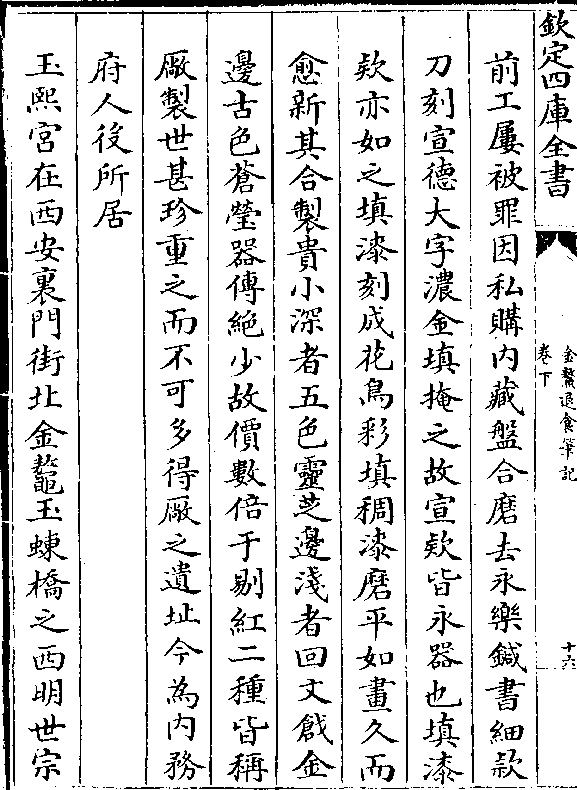 欽定四庫全書
金鰲退食筆記
卷下
十六
前工屢被罪因私購内藏盤合磨去永樂鍼書細款
刀刻宣德大字濃金填掩之故宣欵皆永器也填漆
欵亦如之填漆刻成花鳥彩填稠漆磨平如畫久而
愈新其合製貴小深者五色靈芝邊淺者回文戧金
邊古色蒼瑩器傳絶少故價數倍于剔紅二種皆稱
厰製世甚珍重之而不可多得厰之遺址今為内務
府人役所居
玉熙宫在西安裏門街北金鰲玉蝀橋之西明世宗